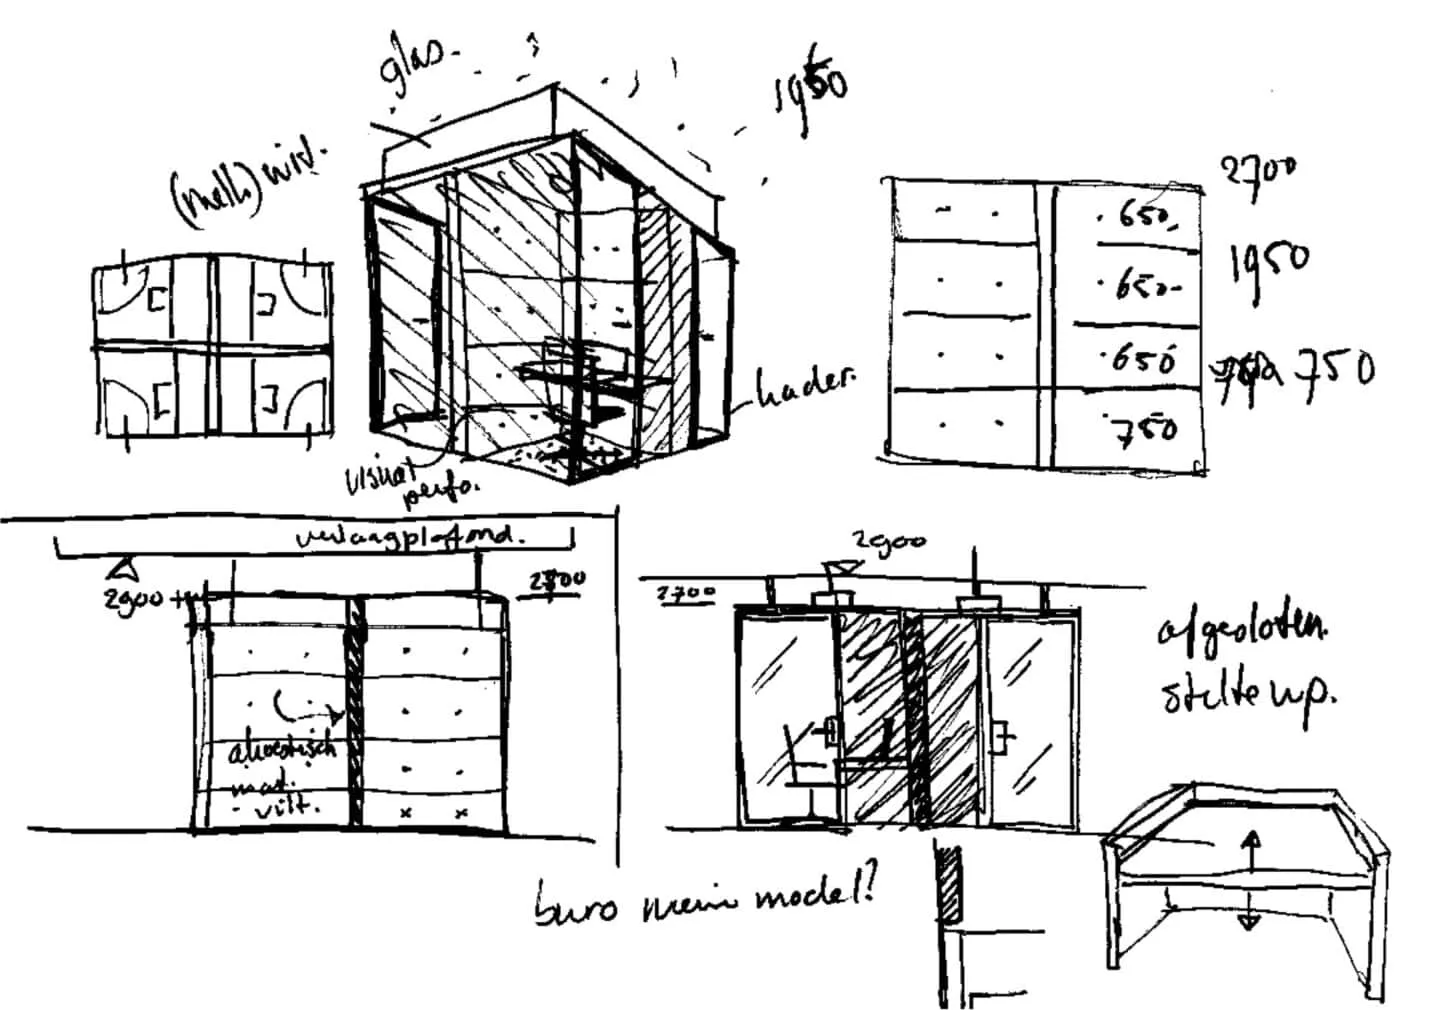 glas.
1950
(melk) wit.
2700
650
1950
650
650
750
750
kader.
visual
perfo.
verlaagplafond.
2900+
2700
akoestisch
mat.
- vilt.
2900
2700
afgesloten.
stilte wp.
buro mein model?